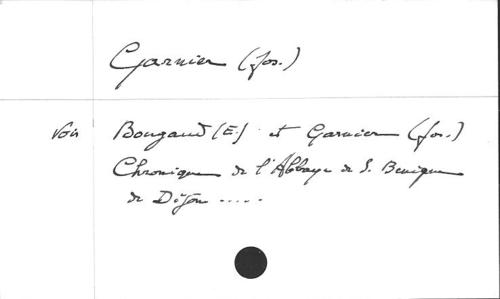 Garnier (Jos.)
Voir Bougaud (E.) et Garnier (Jos.)
Chronique de l'Abbaye de S. Benigne
de Dijon .....